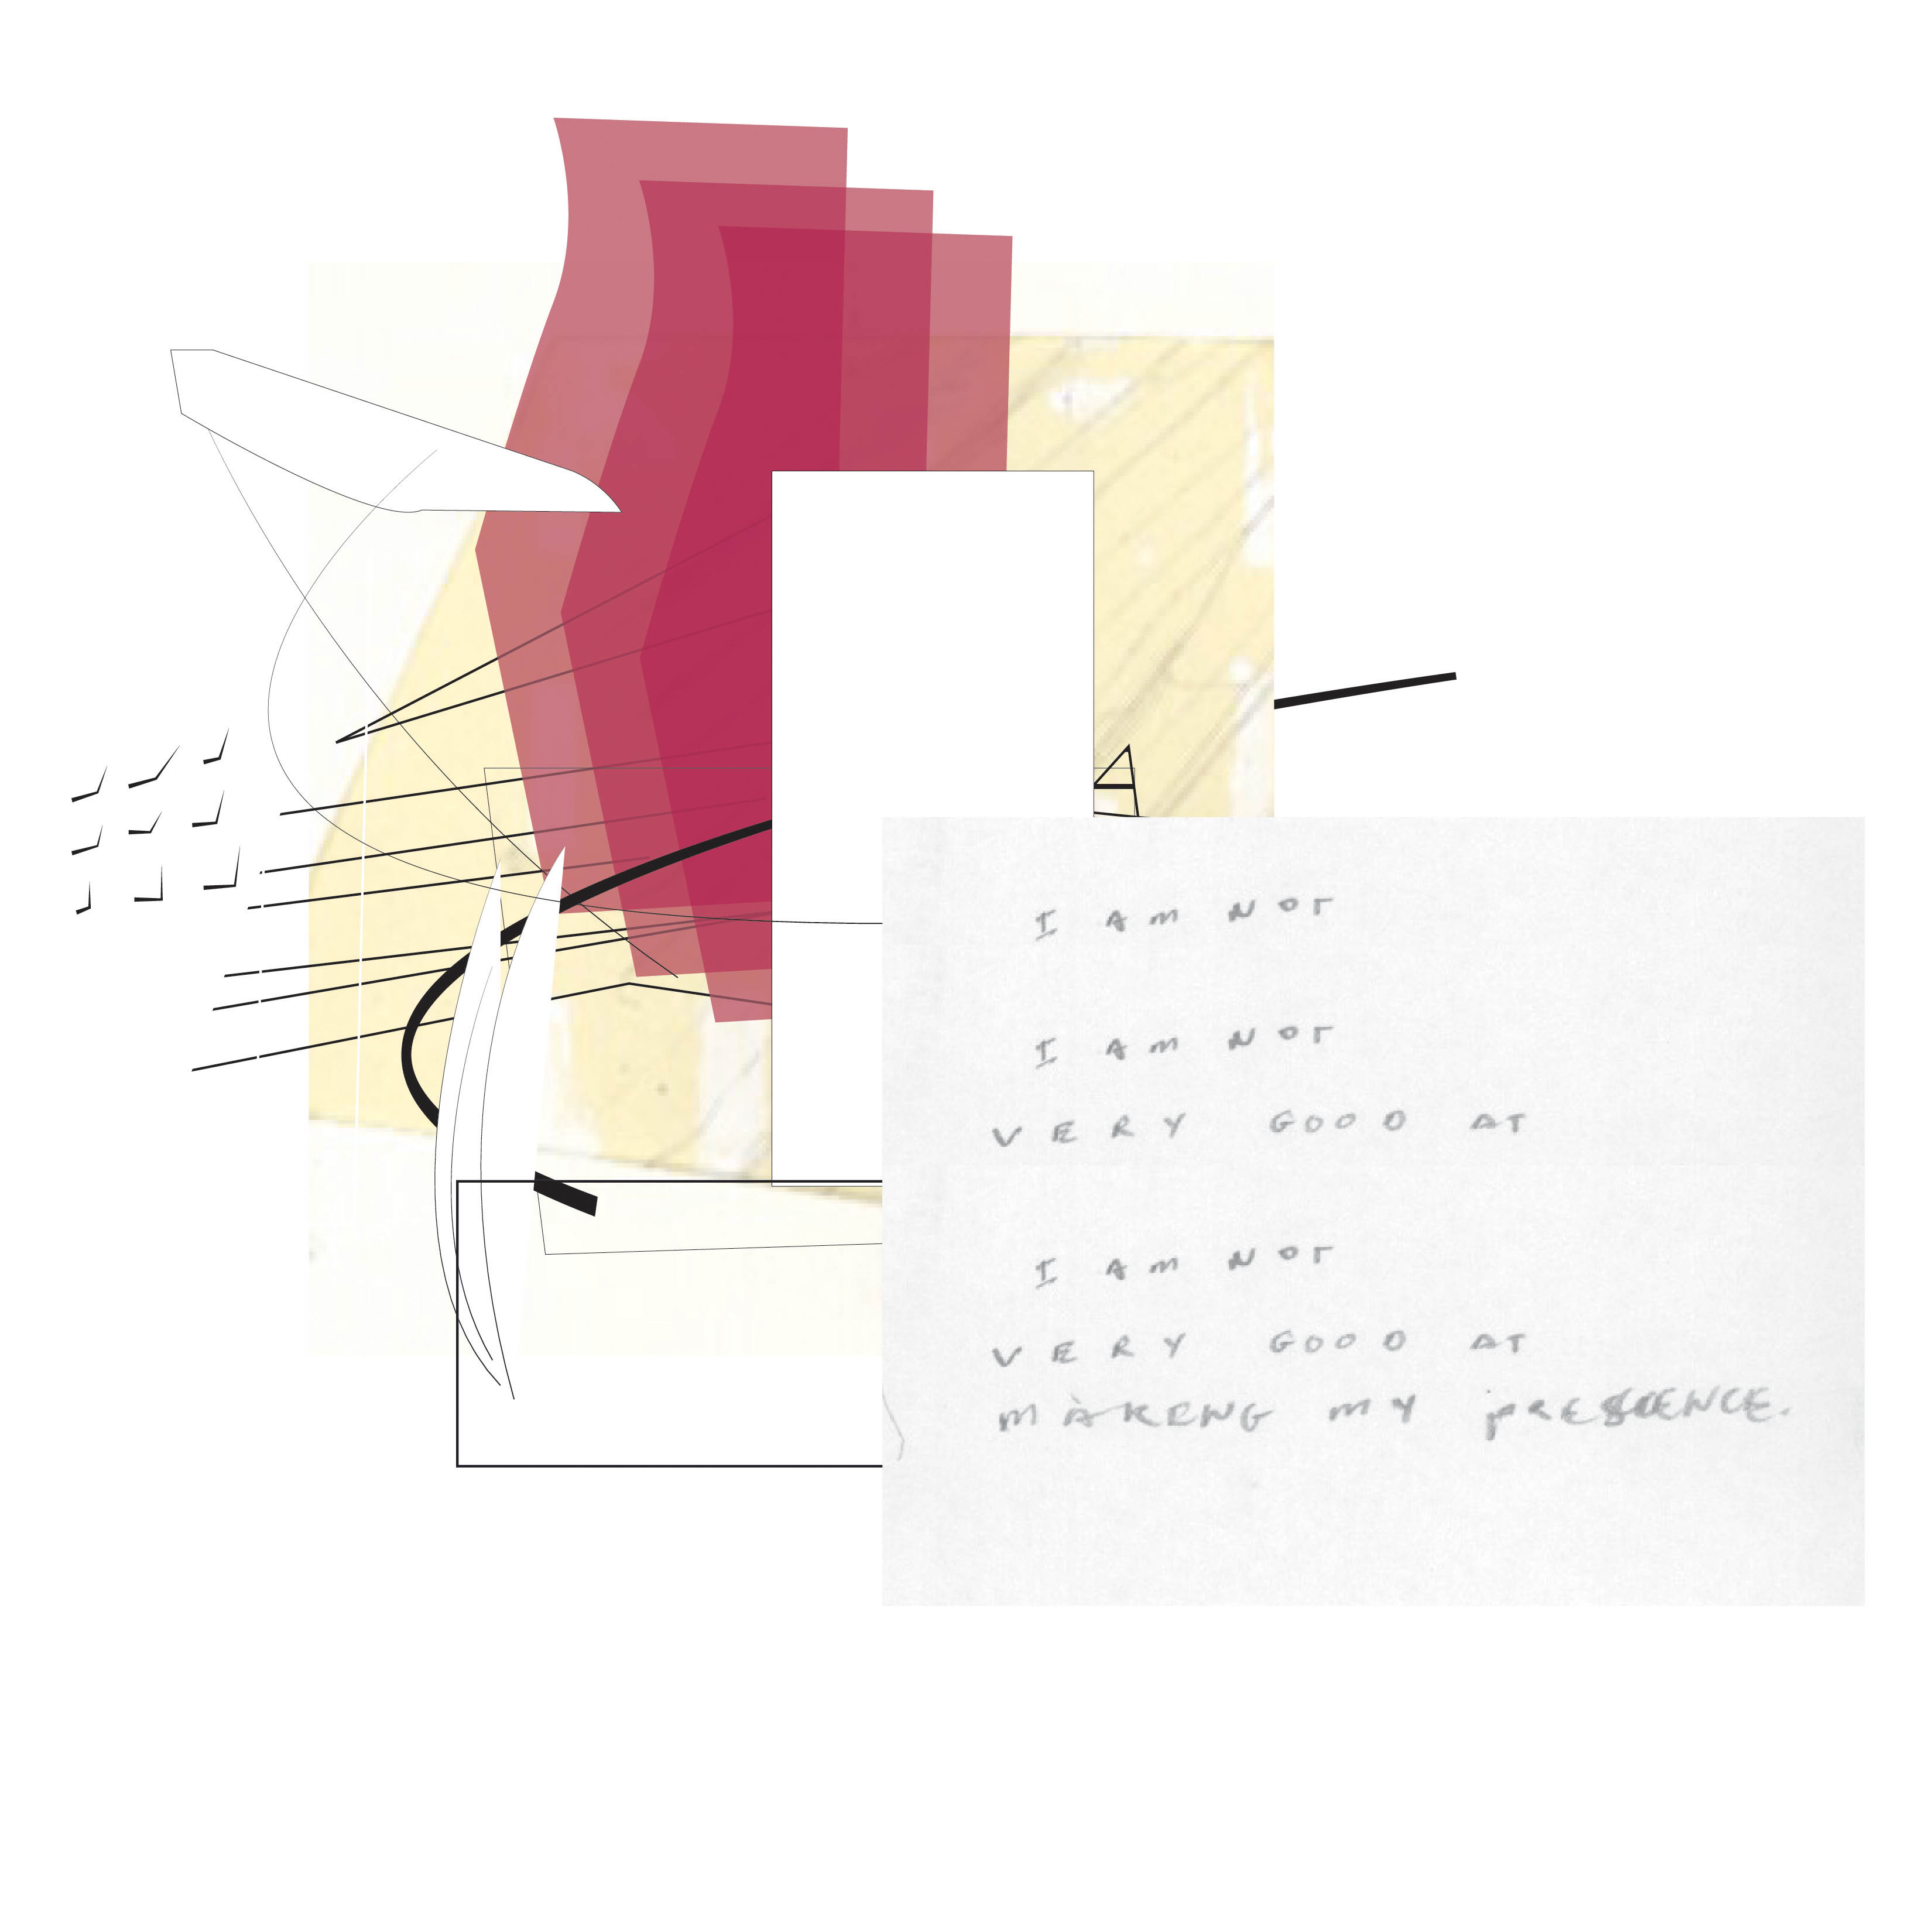 I AM NOT
I AM NOT
VERY GOOD AT
I AM NOT
VERY GOOD AT
MAKING MY PRESCENCE.